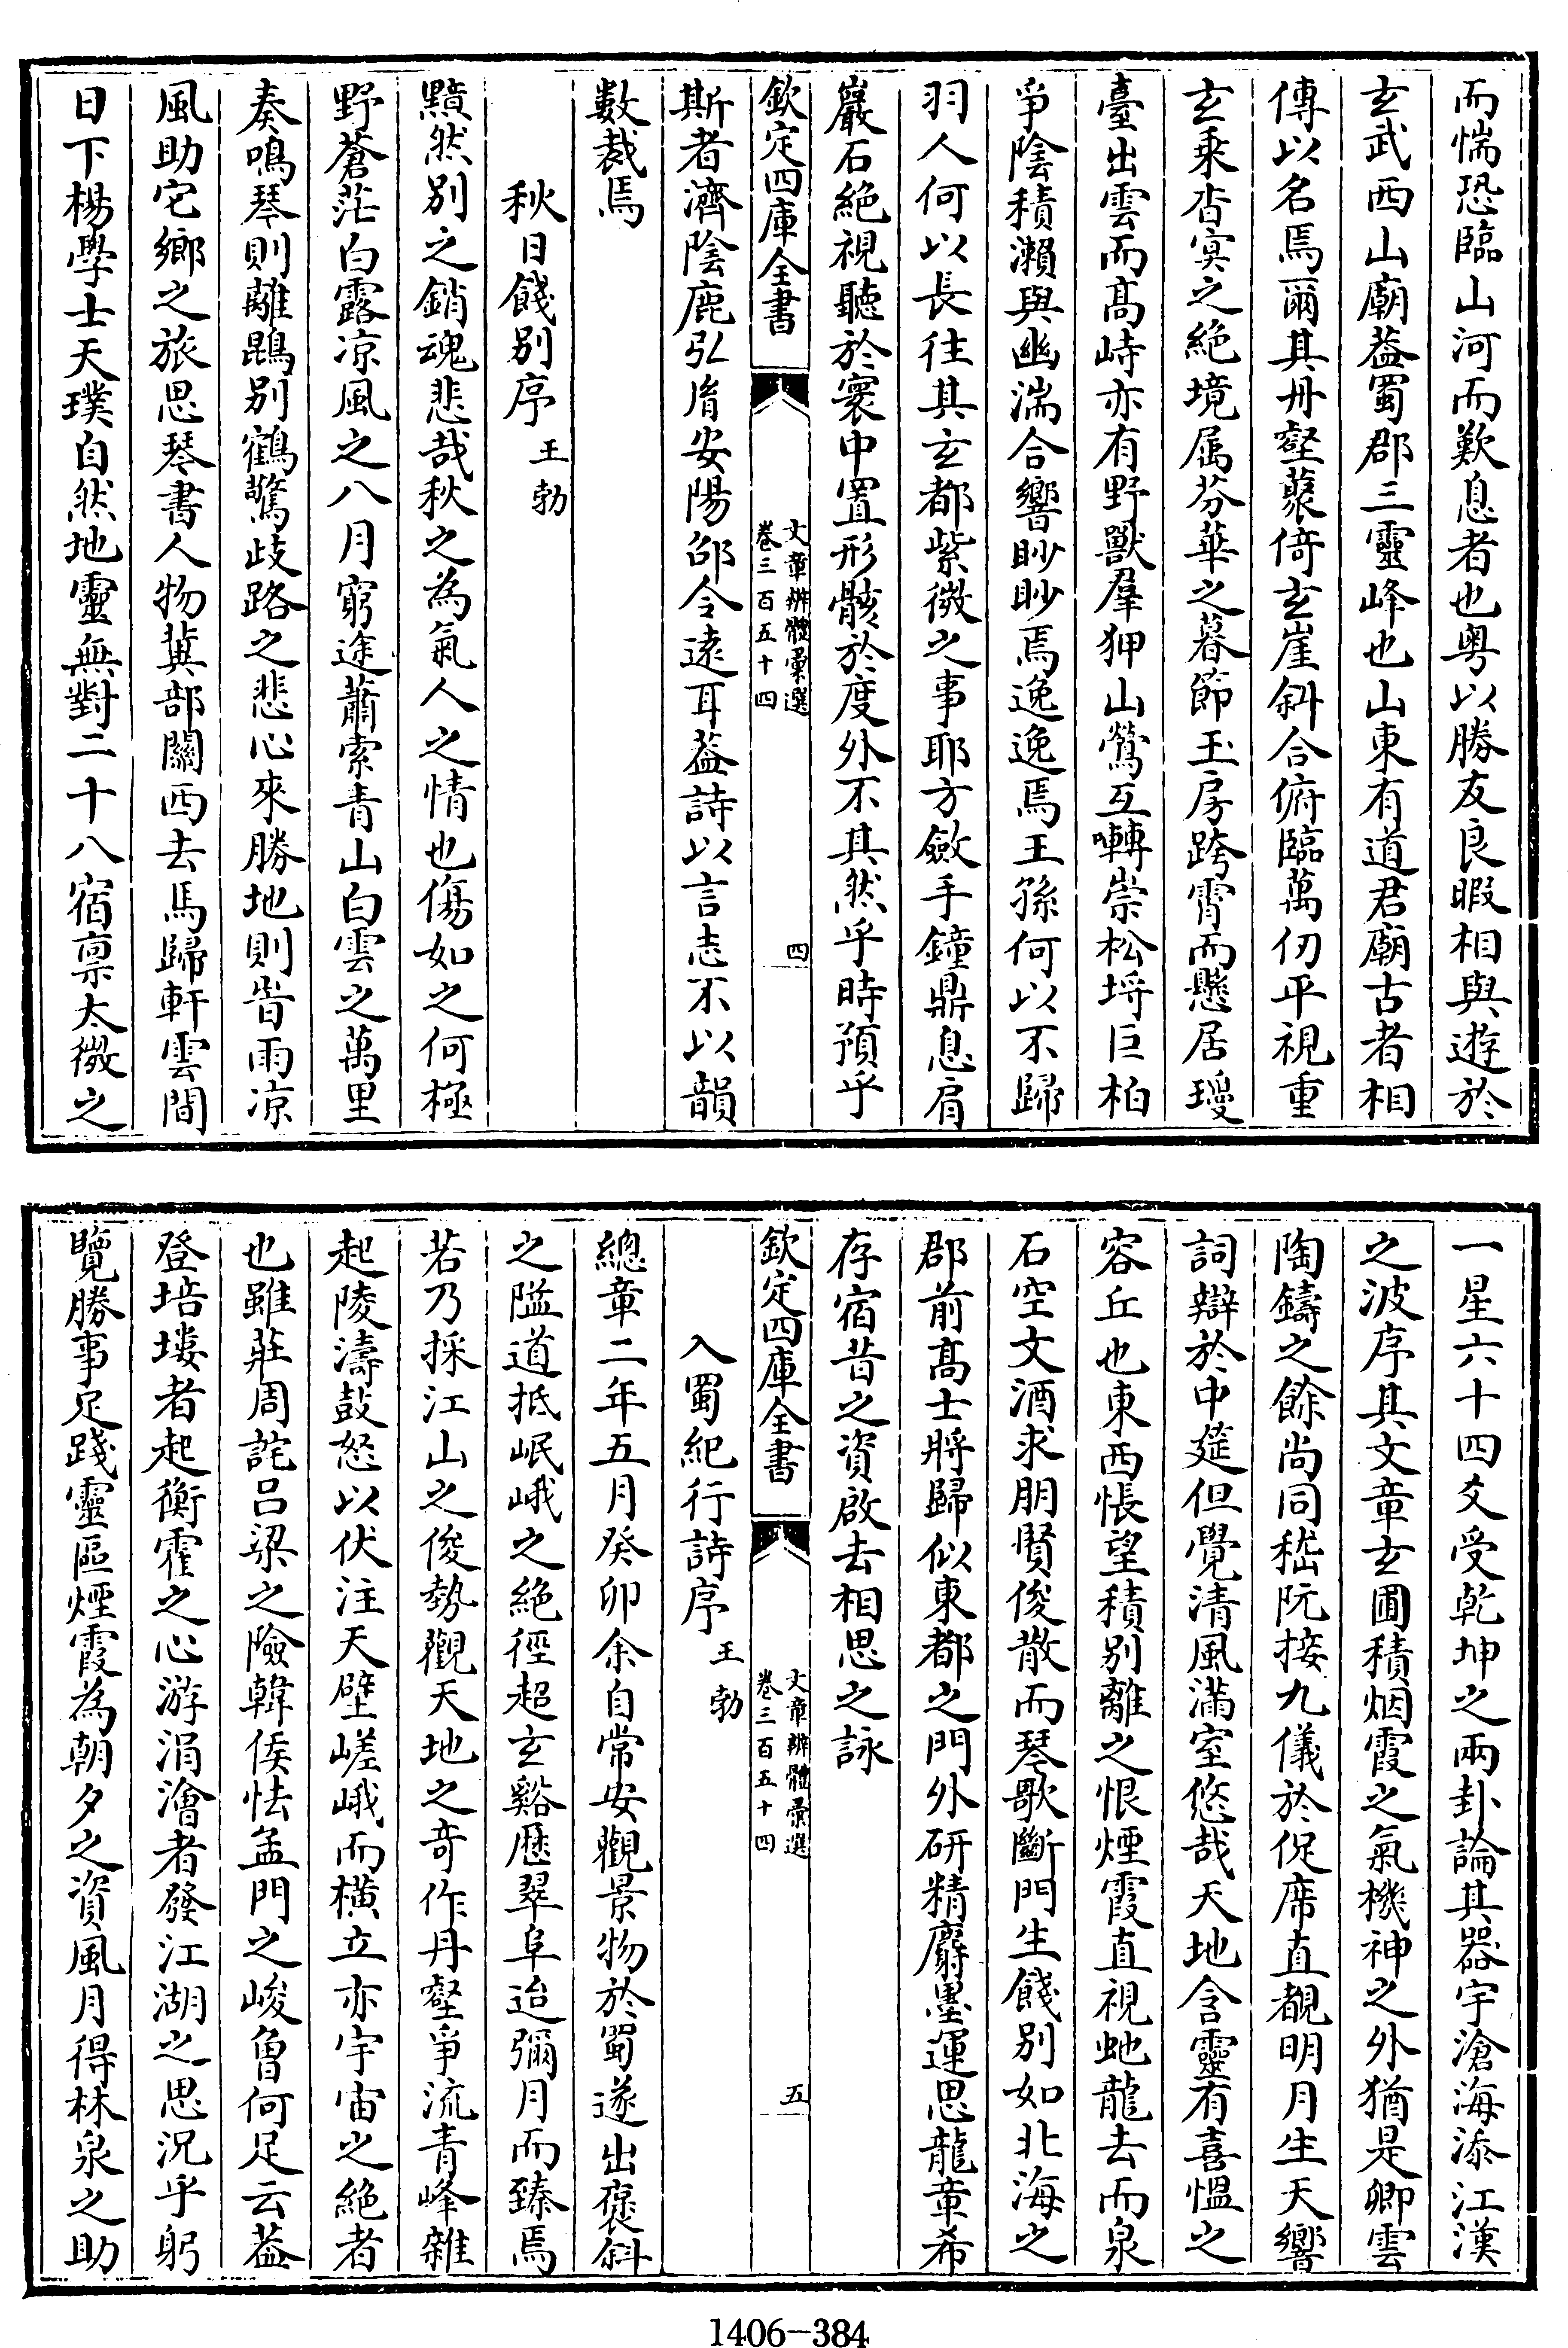 而惴恐臨山河而歎息者也粤以勝友良暇相與遊於
玄武西山廟葢蜀郡三靈峰也山東有道君廟古者相
傳以名焉爾其丹壑藂倚玄崖斜合俯臨萬仞平視重
玄乗杳㝠之絶境属芬華之暮節玉房跨霄而懸居瓊
臺出雲而髙峙亦有野獸羣狎山鶯互囀崇松埓巨柏
爭隂積瀨與幽湍合響眇眇焉逸逸焉王孫何以不歸
羽人何以長往其玄都紫微之事耶方斂手鐘鼎息肩
巖石絶視聽於寰中置形骸於度外不其然乎時預乎
欽定四庫全書
文章辨體彚選
卷三百五十四
四
斯者濟隂鹿弘胤安陽邵令逺耳葢詩以言志不以韻
數裁焉
秋日餞别序
王勃
黯然别之銷魂悲哉秋之為氣人之情也傷如之何極
野蒼茫白露凉風之八月窮途蕭索青山白雲之萬里
奏鳴琴則離鵾别鶴驚歧路之悲心來勝地則㫺雨凉
風助它鄉之旅思琴書人物冀部關西去馬歸軒雲間
日下楊學士天璞自然地靈無對二十八宿禀太微之
一星六十四爻受乾坤之兩卦論其器宇滄海添江漢
之波序其文章玄圃積烟霞之氣機神之外猶是卿雲
陶鑄之餘尚同嵇阮接九儀於促席直覩明月生天響
詞辯於中筵但覺清風滿室悠哉天地含靈有喜愠之
容丘也東西悵望積别離之恨煙霞直視虵龍去而泉
石空文酒求朋賢俊散而琴歌斷門生餞别如北海之
郡前髙士將歸似東都之門外研精麝墨運思龍章希
存宿昔之資啟去相思之詠
欽定四庫全書
文章辨體彚選
卷三百五十四
五
入蜀紀行詩序
王勃
總章二年五月癸卯余自常安觀景物於蜀遂出褒斜
之隘道抵岷峨之絶徑超玄谿歴翠阜迨彌月而臻焉
若乃採江山之俊勢觀天地之竒作丹壑爭流青峰雜
起陵濤鼓怒以伏注天壁嵯峨而横立亦宇宙之絶者
也雖莊周詫吕梁之險韓侯怯孟門之峻曾何足云葢
登培塿者起衡霍之心游涓澮者發江湖之思况乎躬
覽勝事足踐靈區煙霞為朝夕之資風月得林泉之助
1406-384